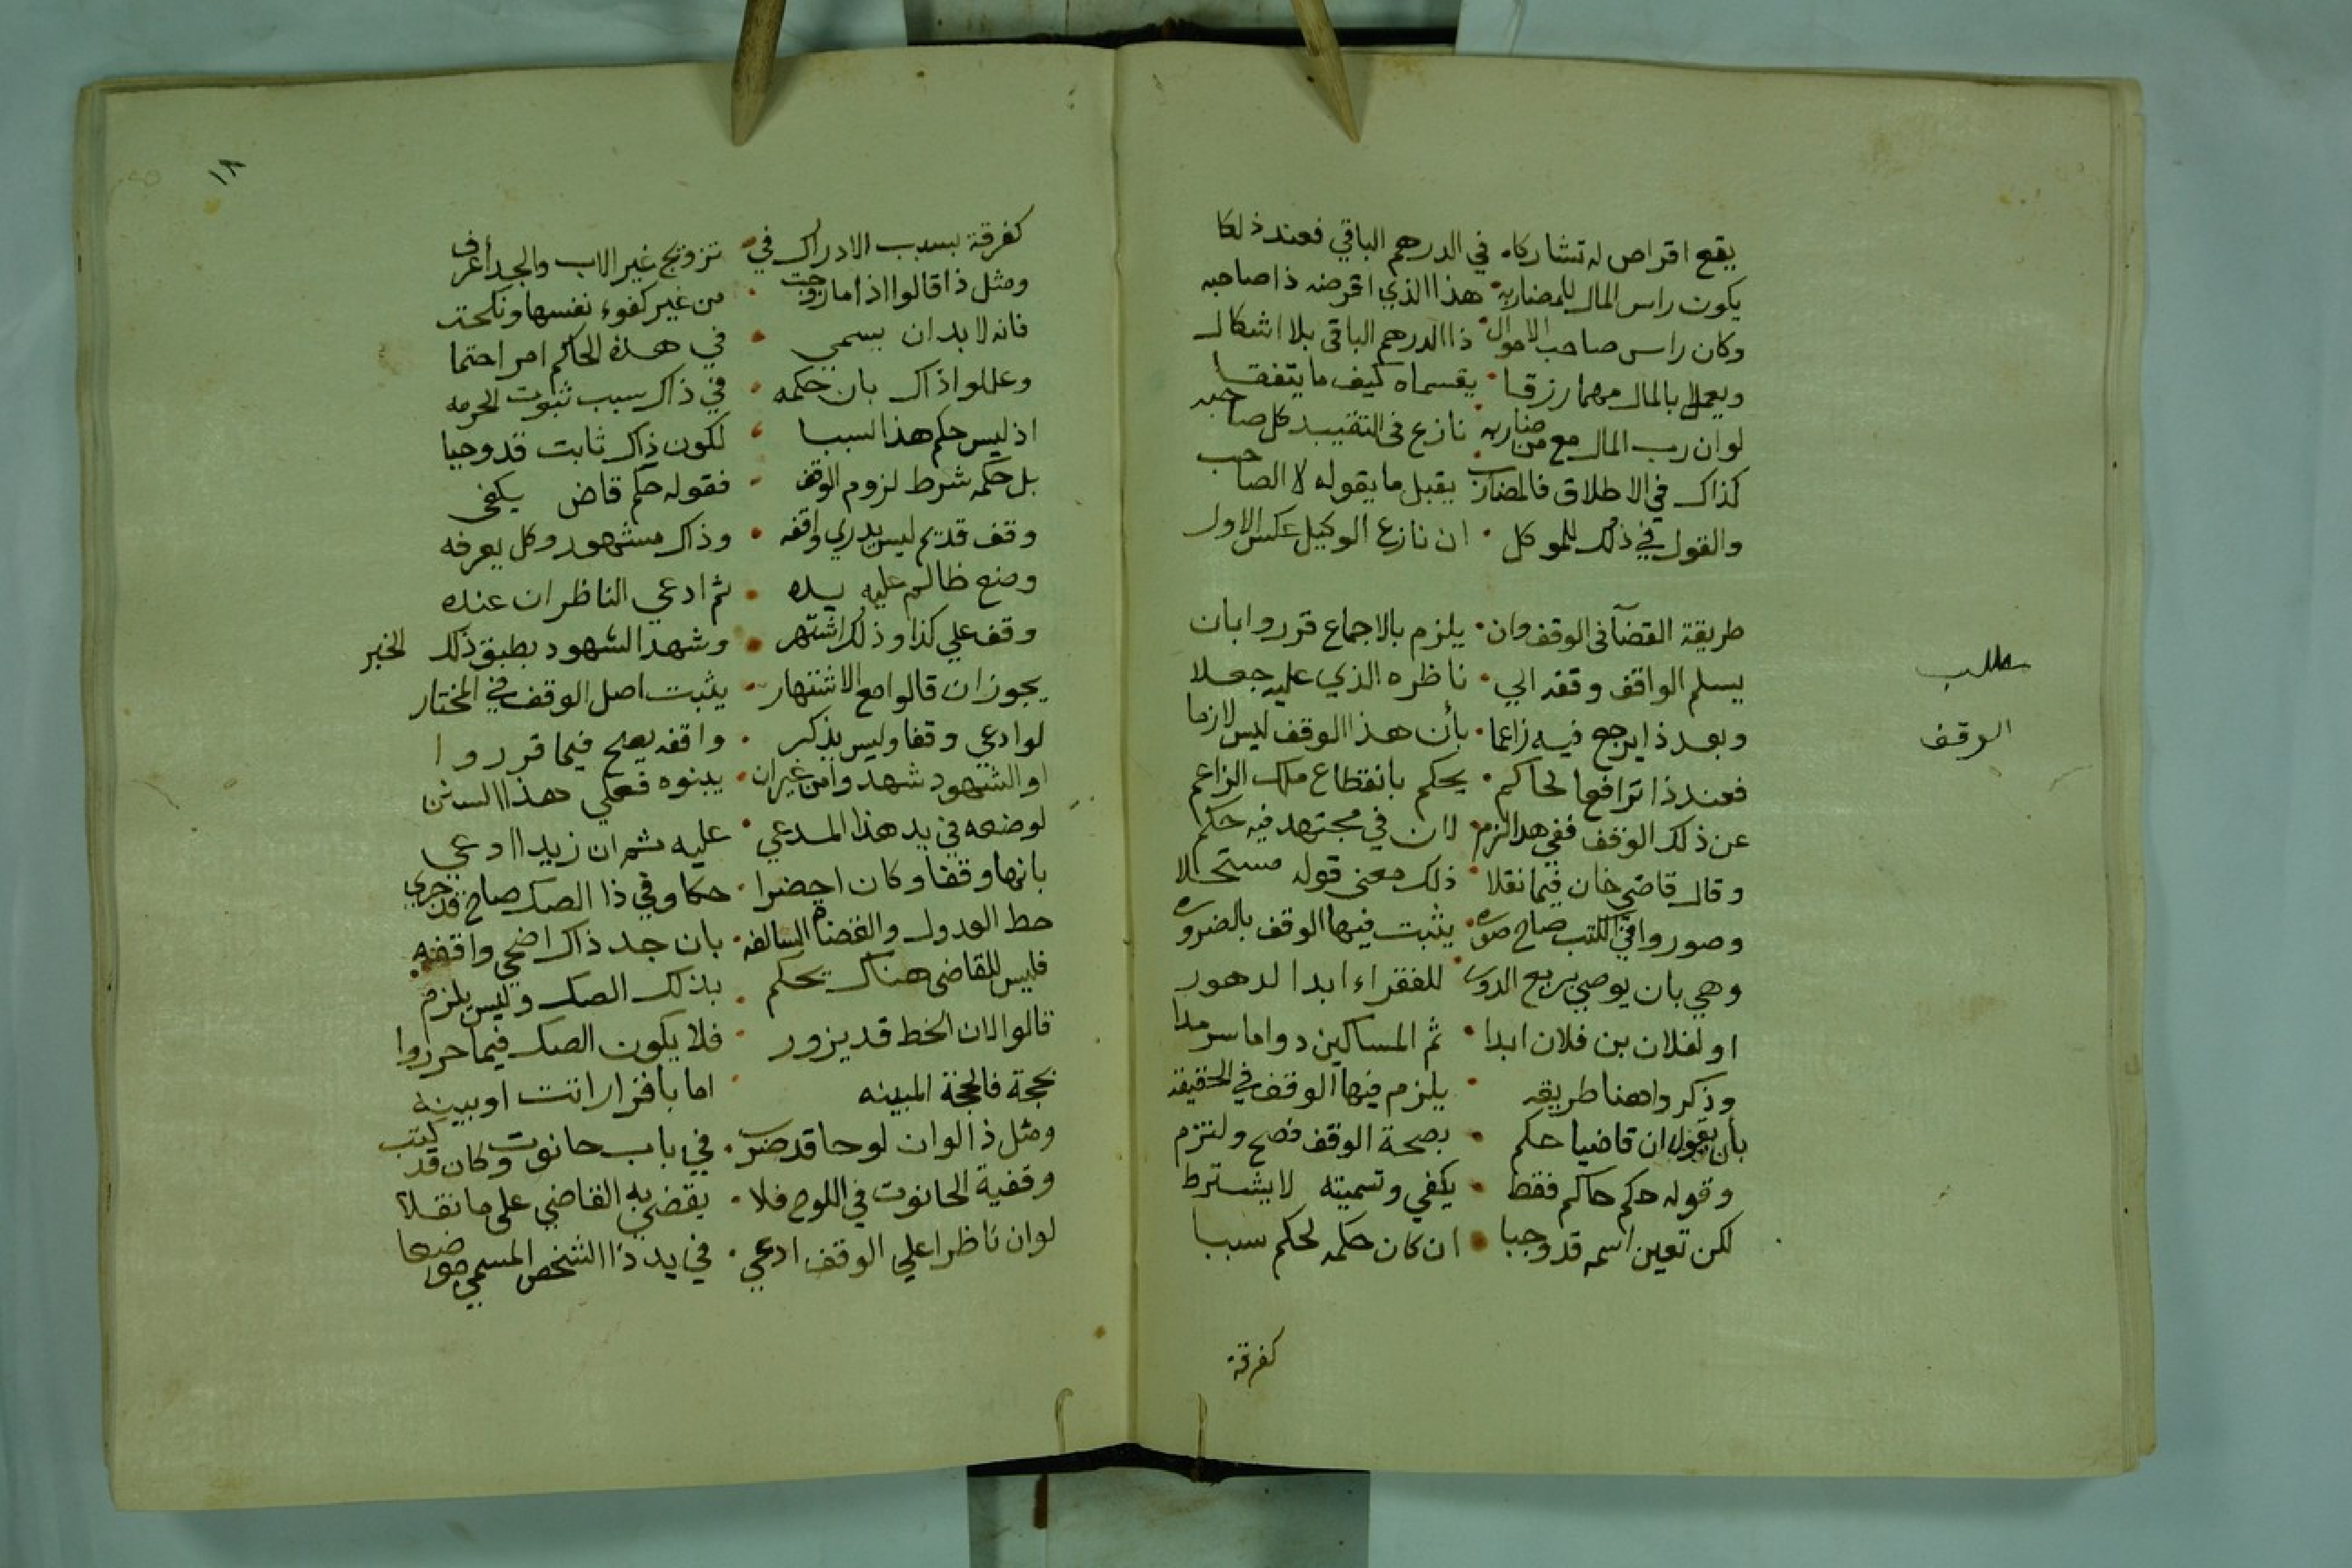 يقع اقراص له تشاركاه في الدرهم الباقي فعند ذلكا
يكون راس المال للمضاربه هذا الذي اقرضه ذا صاحبه
وكان راس صاحب الاموال ذا الدرهم الباقي بلا اشكال
ويعمل بالمال مهما رزقا يقسماه كيف ما يتفقا
لو ان رب المال مع من ضاربه نازع في التقييد كل صاحبه
كذاك في الاطلاق فالمضارب يقبل ما يقوله لا الصاحب
والقول في ذلك للموكل ان نازع الوكيل عكس الاول
مطلب
الوقف
طريقة القضآ في الوقف وان يلزم بالاجماع قرروا بان
يسلم الواقف وقفه الي ناظره الذي عليه جعلا
وبعد ذا يرجع فيه زاعما بأن هذا الوقف ليس لازما
فعند ذا ترافعا لحاكم يحكم بانقطاع ملك الزاعم
عن ذلك الوقف ففي هذا لزم لان في مجتهد فيه حكم
وقال قاضي خان فيما نقلا ذلك معني قوله مستحلا
وصوروا في الكتب صاح صوره يثبت فيها الوقف بالضروره
وهي بان يوصي بريع الدور للفقراء ابدا الدهور
او لفلان بن فلان ابدا ثم المساكين دواما سرمدا
وذكروا هنا طريقه يلزم فيها الوقف في الحقيقه
بأن يقول ان قاضيا حكم بصحة الوقف فصح ولتزم
وقوله حكم حاكم فقط يكفي وتسميته لا يشترط
لكن تعين اسمه قد وجبا ان كان حكمه لحكم سببا
كفرقة
١٨
كفرقة بسبب الادراك في تزويج غير الاب والجد أعرف
ومثل ذا قالوا اذا ما زوجت من غير كفوء نفسها ونكحت
فانه لا بد ان يسمي في هذه الحاكم امر احتما
وعللوا ذاك بان حكمه في ذاك سبب ثبوت الحرمه
اذ ليس حكم هذا السببا لكون ذاك ثابت قد وجبا
بل حكمه شرط لزوم الوقف فقوله حكم قاض يكفي
وقف قديم ليس يدري واقفه وذاك مشهور وكل يعرفه
وضع ظالم عليه يده ثم ادعي الناظر ان عنده
وقف علي كذا وذلك اشتهر وشهد الشهود بطبق ذلك الخبر
يجوز ان قالوا مع الاشتهار يثبت اصل الوقف في المختار
لو ادعي وقفا وليس يذكر واقفه يصح فيما قرروا
او الشهود شهدوا من غير ان يبنوه فعلي هذا السنن
لو ضعه في يد هذا المدعي عليه ثم ان زيدا ادعي
بانها وقفا وكان احضرا حكا وفي ذا الصك صاح قد جري
خط العدول والقضاة السالفه بان جد ذاك اضحي واقفه
فليس للقاضي هناك يحكم بذلك الصك وليس يلزم
قالوا لان الخط قد يزور فلا يكون الصك فيما حرروا
بحجة فالحجة المبينه اما باقرار اتت او بينه
ومثل ذا لو ان لوحا قد ضرب في باب حانوت وكان قد كتب
وقفية الحانوت في اللوح فلا يقضي به القاضي علي ما نقلا
لو ان ناظرا علي الوقف ادعي في يد ذا الشخص المسمي موضعا